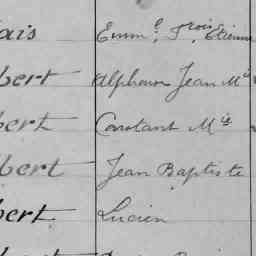 ais Emm.l F.rois Etienne
bert Alphonse Jean M.ie
bert Constant M.ie
bert Jean Baptiste
bert Lucien